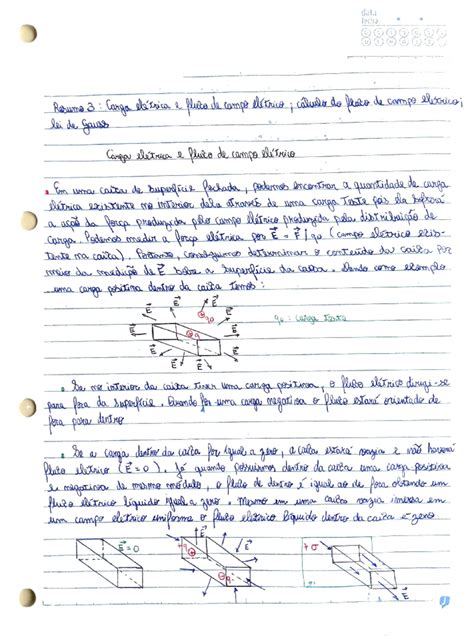 data
fecha
D S T Q Q S S
D L M M J V S
Resumo 3: Carga elétrica e fluxo de campo elétrico; cálculo do fluxo de campo elétrico;
lei de Gauss
Carga elétrica e fluxo de campo elétrico
• Em uma caixa de superfície fechada, podemos encontrar a quantidade de carga
elétrica existente no interior dela através de uma carga teste pois ela sofrerá
a ação da força produzida pelo campo elétrico produzida pela distribuição de
carga. Podemos medir a força elétrica por E = F/q0 (campo elétrico exis-
tente na caixa). Portanto, conseguimos determinar o conteúdo da caixa por
meio da medição de E sobre a superfície da caixa. Dando como exemplo
uma carga positiva dentro da caixa temos:
E E E
q0 q0: carga teste
E q E
E E E
• Se no interior da caixa tiver uma carga positiva, o fluxo elétrico dirigi-se
para fora da superfície. Quando for uma carga negativa o fluxo estará orientado de
fora para dentro
• Se a carga dentro da caixa for igual a zero, a caixa estará vazia e não haverá
fluxo elétrico (E = 0). Já quando possuirmos dentro da caixa uma carga positiva
e negativa de mesmo módulo, o fluxo de dentro é igual ao de fora obtendo um
fluxo elétrico líquido igual a zero. Mesmo em uma caixa vazia imersa em
um campo elétrico uniforme o fluxo elétrico líquido dentro da caixa é zero
E = 0 +q E E +σ
-q E E